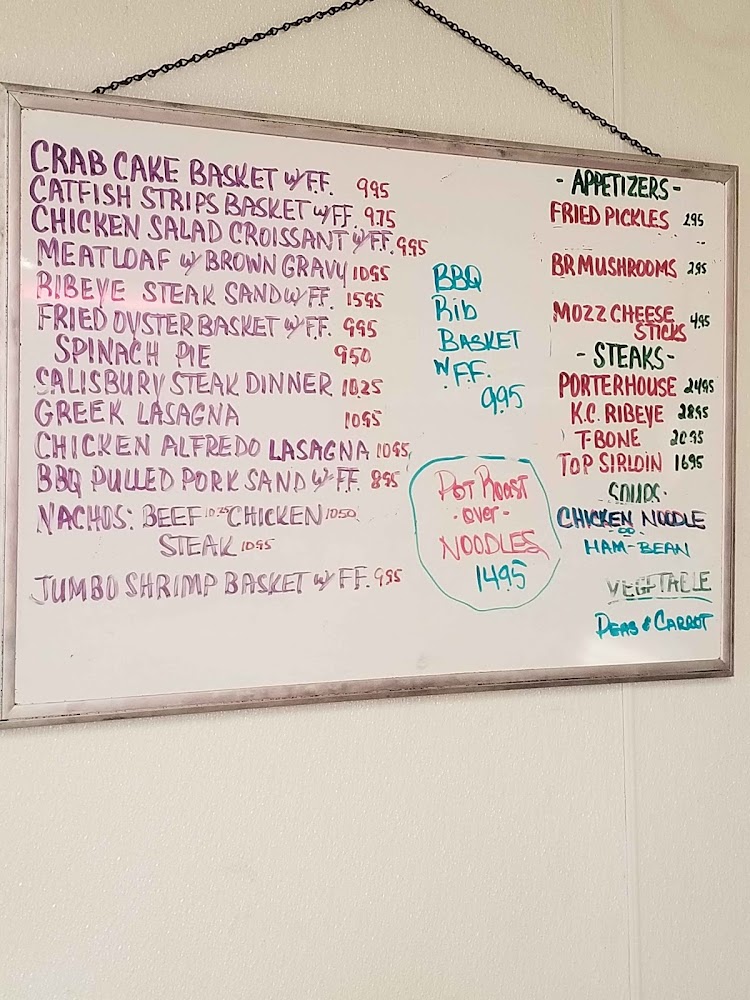 CRAB CAKE BASKET W/ F.F. 995
CATFISH STRIPS BASKET W/ FF. 9.75
CHICKEN SALAD CROISSANT W/ FF. 9.95
MEATLOAF W/ BROWN GRAVY 1095
RIBEYE STEAK SAND W/ FF. 1595
FRIED OYSTER BASKET W/ FF. 995
SPINACH PIE 950
SALISBURY STEAK DINNER 10.25
GREEK LASAGNA 1095
CHICKEN ALFREDO LASAGNA 1095
BBQ PULLED PORK SAND W/ FF. 895
NACHOS: BEEF 10.25 CHICKEN 1050
STEAK 1095
JUMBO SHRIMP BASKET W/ FF. 995
BBQ
Rib
BASKET
W/ F.F.
9.95
POT ROAST
- over -
NOODLES
1495
- APPETIZERS -
FRIED PICKLES 295
BR MUSHROOMS 295
MOZZ CHEESE
STICKS 495
- STEAKS -
PORTERHOUSE 2495
K.C. RIBEYE 2895
T-BONE 2095
TOP SIRLOIN 1695
SOUPS
CHICKEN NOODLE
HAM-BEAN
VEGETABLE
PEAS & CARROT